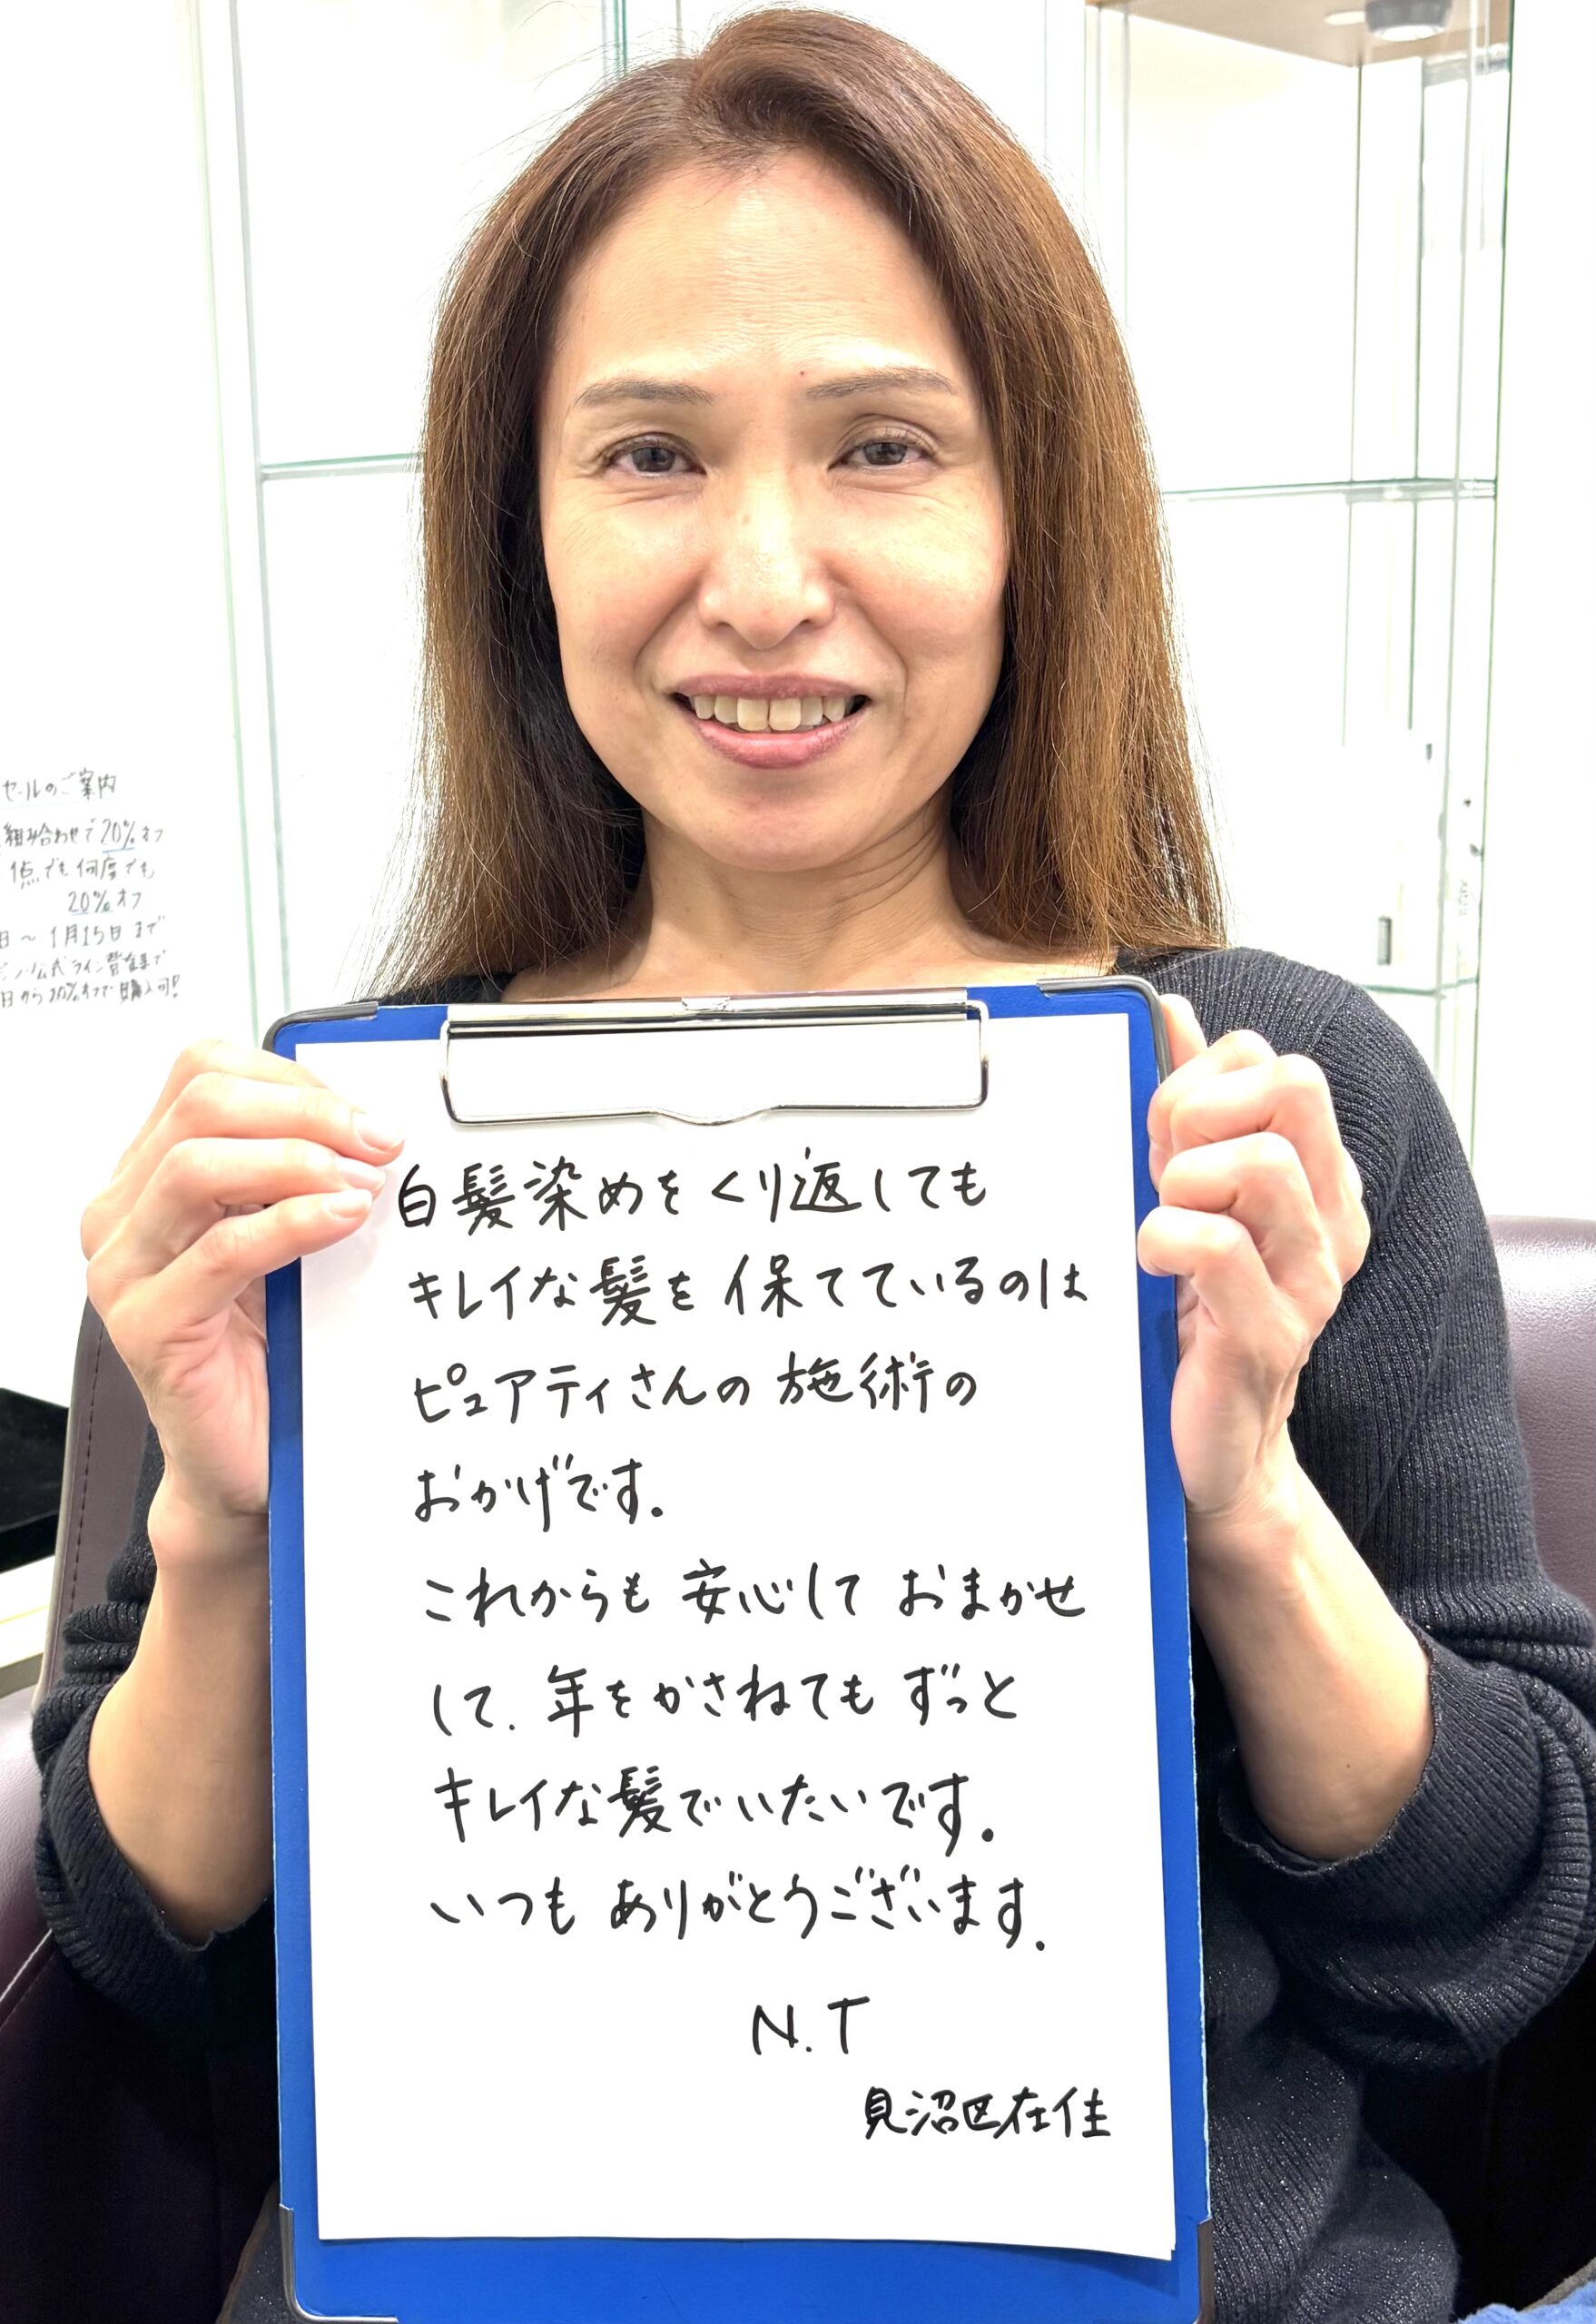 セールのご案内
組み合わせで20%オフ
1点でも何度でも
20%オフ
日〜1月15日まで
公式ライン登録で
日から20%オフで購入可!
白髪染めをくり返しても
キレイな髪を保てているのは
ピュアティさんの施術の
おかげです。
これからも安心しておまかせ
して、年をかさねてもずっと
キレイな髪でいたいです。
いつもありがとうございます。
N.T
見沼区在住